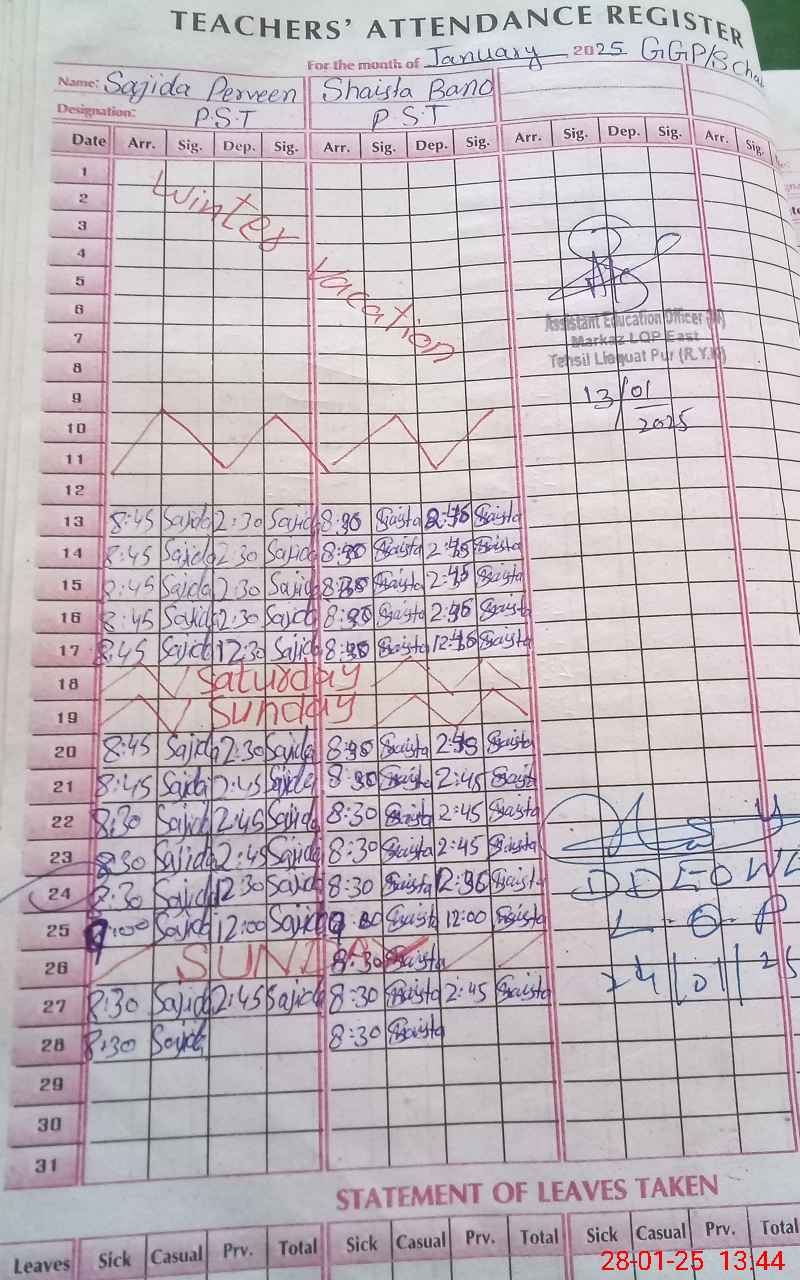 TEACHERS' ATTENDANCE REGISTER
For the month of January 2025 GGP/S Cha
Name: Sajida Perveen Shaista Bano
Designation: P.S.T P.S.T
Date Arr. Sig. Dep. Sig. Arr. Sig. Dep. Sig. Arr. Sig. Dep. Sig. Arr. Sig.
1
2
3
4
5
6
7
8
9
10
11
12
Winter Vacation
Assistant Education Officer
Markaz LQP East
Tehsil Liaquat Pur (R.Y.K)
13/01/2025
13 8:45 Sajida 2:30 Sajida Shaista Shaista
14 8:45 Sajida 2:30 Sajida Shaista Shaista
15 8:45 Sajida 2:30 Sajida Shaista Shaista
16 8:45 Sajida 2:30 Sajida Shaista Shaista
17 8:45 Sajida 12:30 Sajida Shaista Shaista
18 Saturday
19 Sunday
20 8:45 Sajida 2:30 Sajida Shaista Shaista
21 8:45 Sajida 2:45 Sajida 8:30 Shaista 2:45 Shaista
22 8:30 Sajida 2:45 Sajida 8:30 Shaista 2:45 Shaista
23 8:30 Sajida 2:45 Sajida 8:30 Shaista 2:45 Shaista
24 8:30 Sajida 12:30 Sajida 8:30 Shaista Shaista
25 9:00 Sajida 12:00 Sajida 9:00 Shaista 12:00 Shaista
26 8:30 Shaista
27 8:30 Sajida 2:45 Sajida 8:30 Shaista 2:45 Shaista
28 8:30 Sajida 8:30 Shaista
29
30
31
DDEO WE
L-Q-P
24/01/25
STATEMENT OF LEAVES TAKEN
Leaves Sick Casual Prv. Total Sick Casual Prv. Total Sick Casual Prv. Total
28-01-25 13:44